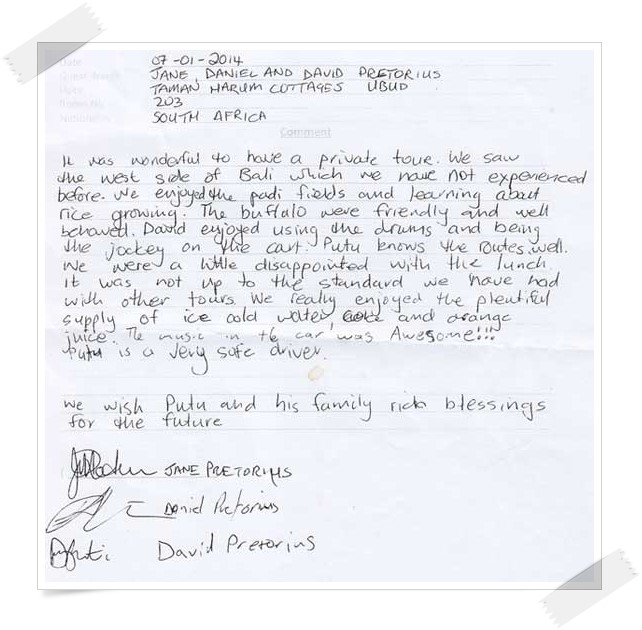 07-01-2014
JANE, DANIEL AND DAVID PRETORIUS
TAMAN HARUM COTTAGES UBUD
203
SOUTH AFRICA
Comment
It was wonderful to have a private tour. We saw
the west side of Bali which we have not experienced
before. We enjoyed the padi fields and learning about
rice growing. The buffalo were friendly and well
behaved. David enjoyed using the drums and being
the jockey on the cart. Putu knows the routes well.
We were a little disappointed with the lunch.
It was not up to the standard we have had
with other tours. We really enjoyed the plentiful
supply of ice cold water and orange
juice. The music in the car was Awesome!!!
Putu is a very safe driver.
We wish Putu and his family rich blessings
for the future
JANE PRETORIUS
Daniel Pretorius
David Pretorius